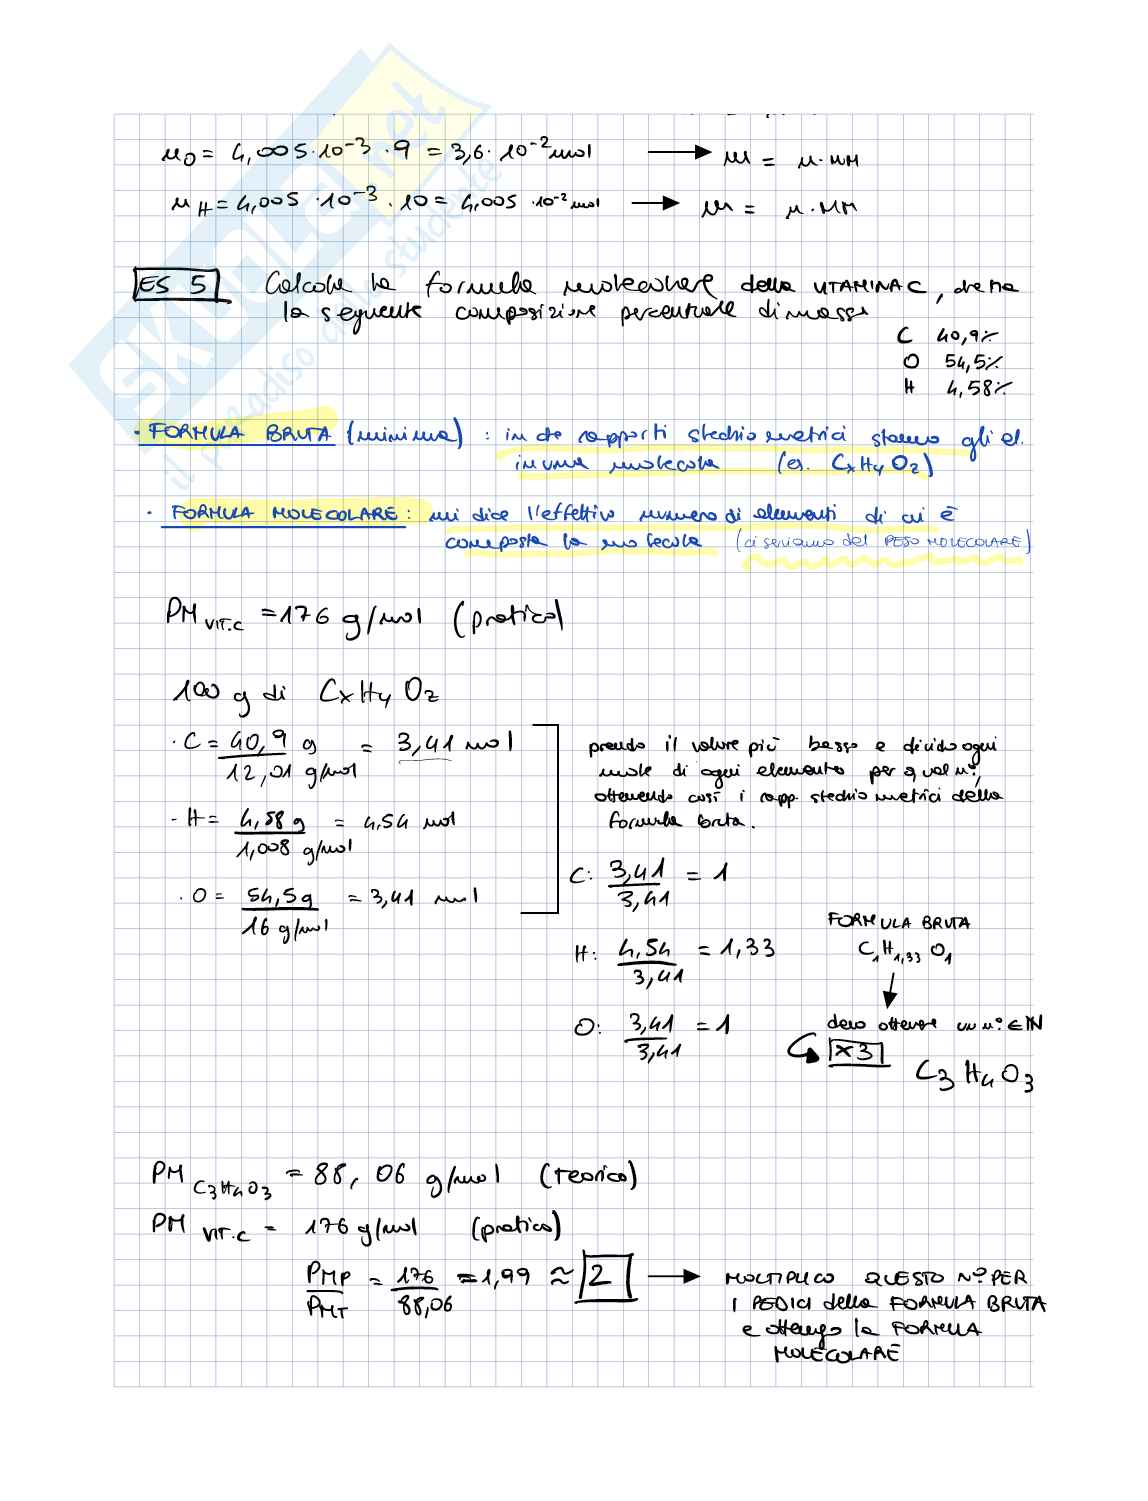 n_O = 4,005·10⁻³ · 9 = 3,6·10⁻² mol → m = n·MM
n_H = 4,005·10⁻³ · 10 = 4,005·10⁻² mol → m = n·MM
ES 5 Calcola la formula molecolare della VITAMINA C, che ha
la seguente composizione percentuale di massa
C 40,9%
O 54,5%
H 4,58%
· FORMULA BRUTA (minima) : in che rapporti stechiometrici stanno gli el.
in una molecola (es. CxHyOz)
· FORMULA MOLECOLARE : mi dice l'effettivo numero di elementi di cui è
composta la molecola (ci serviamo del PESO MOLECOLARE)
PM VIT.C = 176 g/mol (pratico)
100 g di CxHyOz
· C = 40,9 g / 12,01 g/mol = 3,41 mol
· H = 4,58 g / 1,008 g/mol = 4,54 mol
· O = 54,5g / 16 g/mol = 3,41 mol
prendo il valore più basso e divido ogni
mole di ogni elemento per quel n°,
ottenendo così i rapp. stechiometrici della
formula bruta.
C: 3,41 / 3,41 = 1
H: 4,54 / 3,41 = 1,33
O: 3,41 / 3,41 = 1
FORMULA BRUTA
C₁H₁,₃₃O₁
devo ottenere un n° ∈ ℕ
x3
C₃H₄O₃
PM C₃H₄O₃ = 88,06 g/mol (teorico)
PM VIT.C = 176 g/mol (pratico)
PMP / PMT = 176 / 88,06 = 1,99 ≈ 2 → MOLTIPLICO QUESTO N° PER
I PEDICI della FORMULA BRUTA
e ottengo la FORMULA
MOLECOLARE
SKUOLA.net
il paradiso dello studente